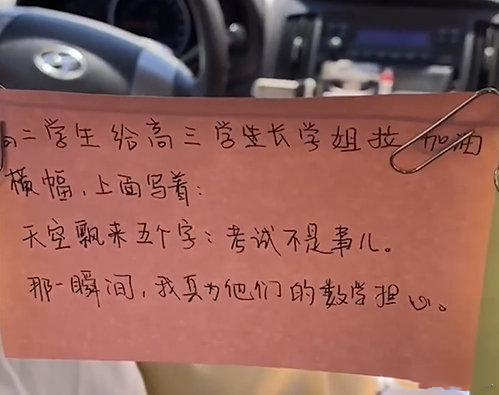 二学生给高三学生长学姐拉加油
横幅，上面写着：
天空飘来五个字：考试不是事儿。
那一瞬间，我真为他们的数学担心。